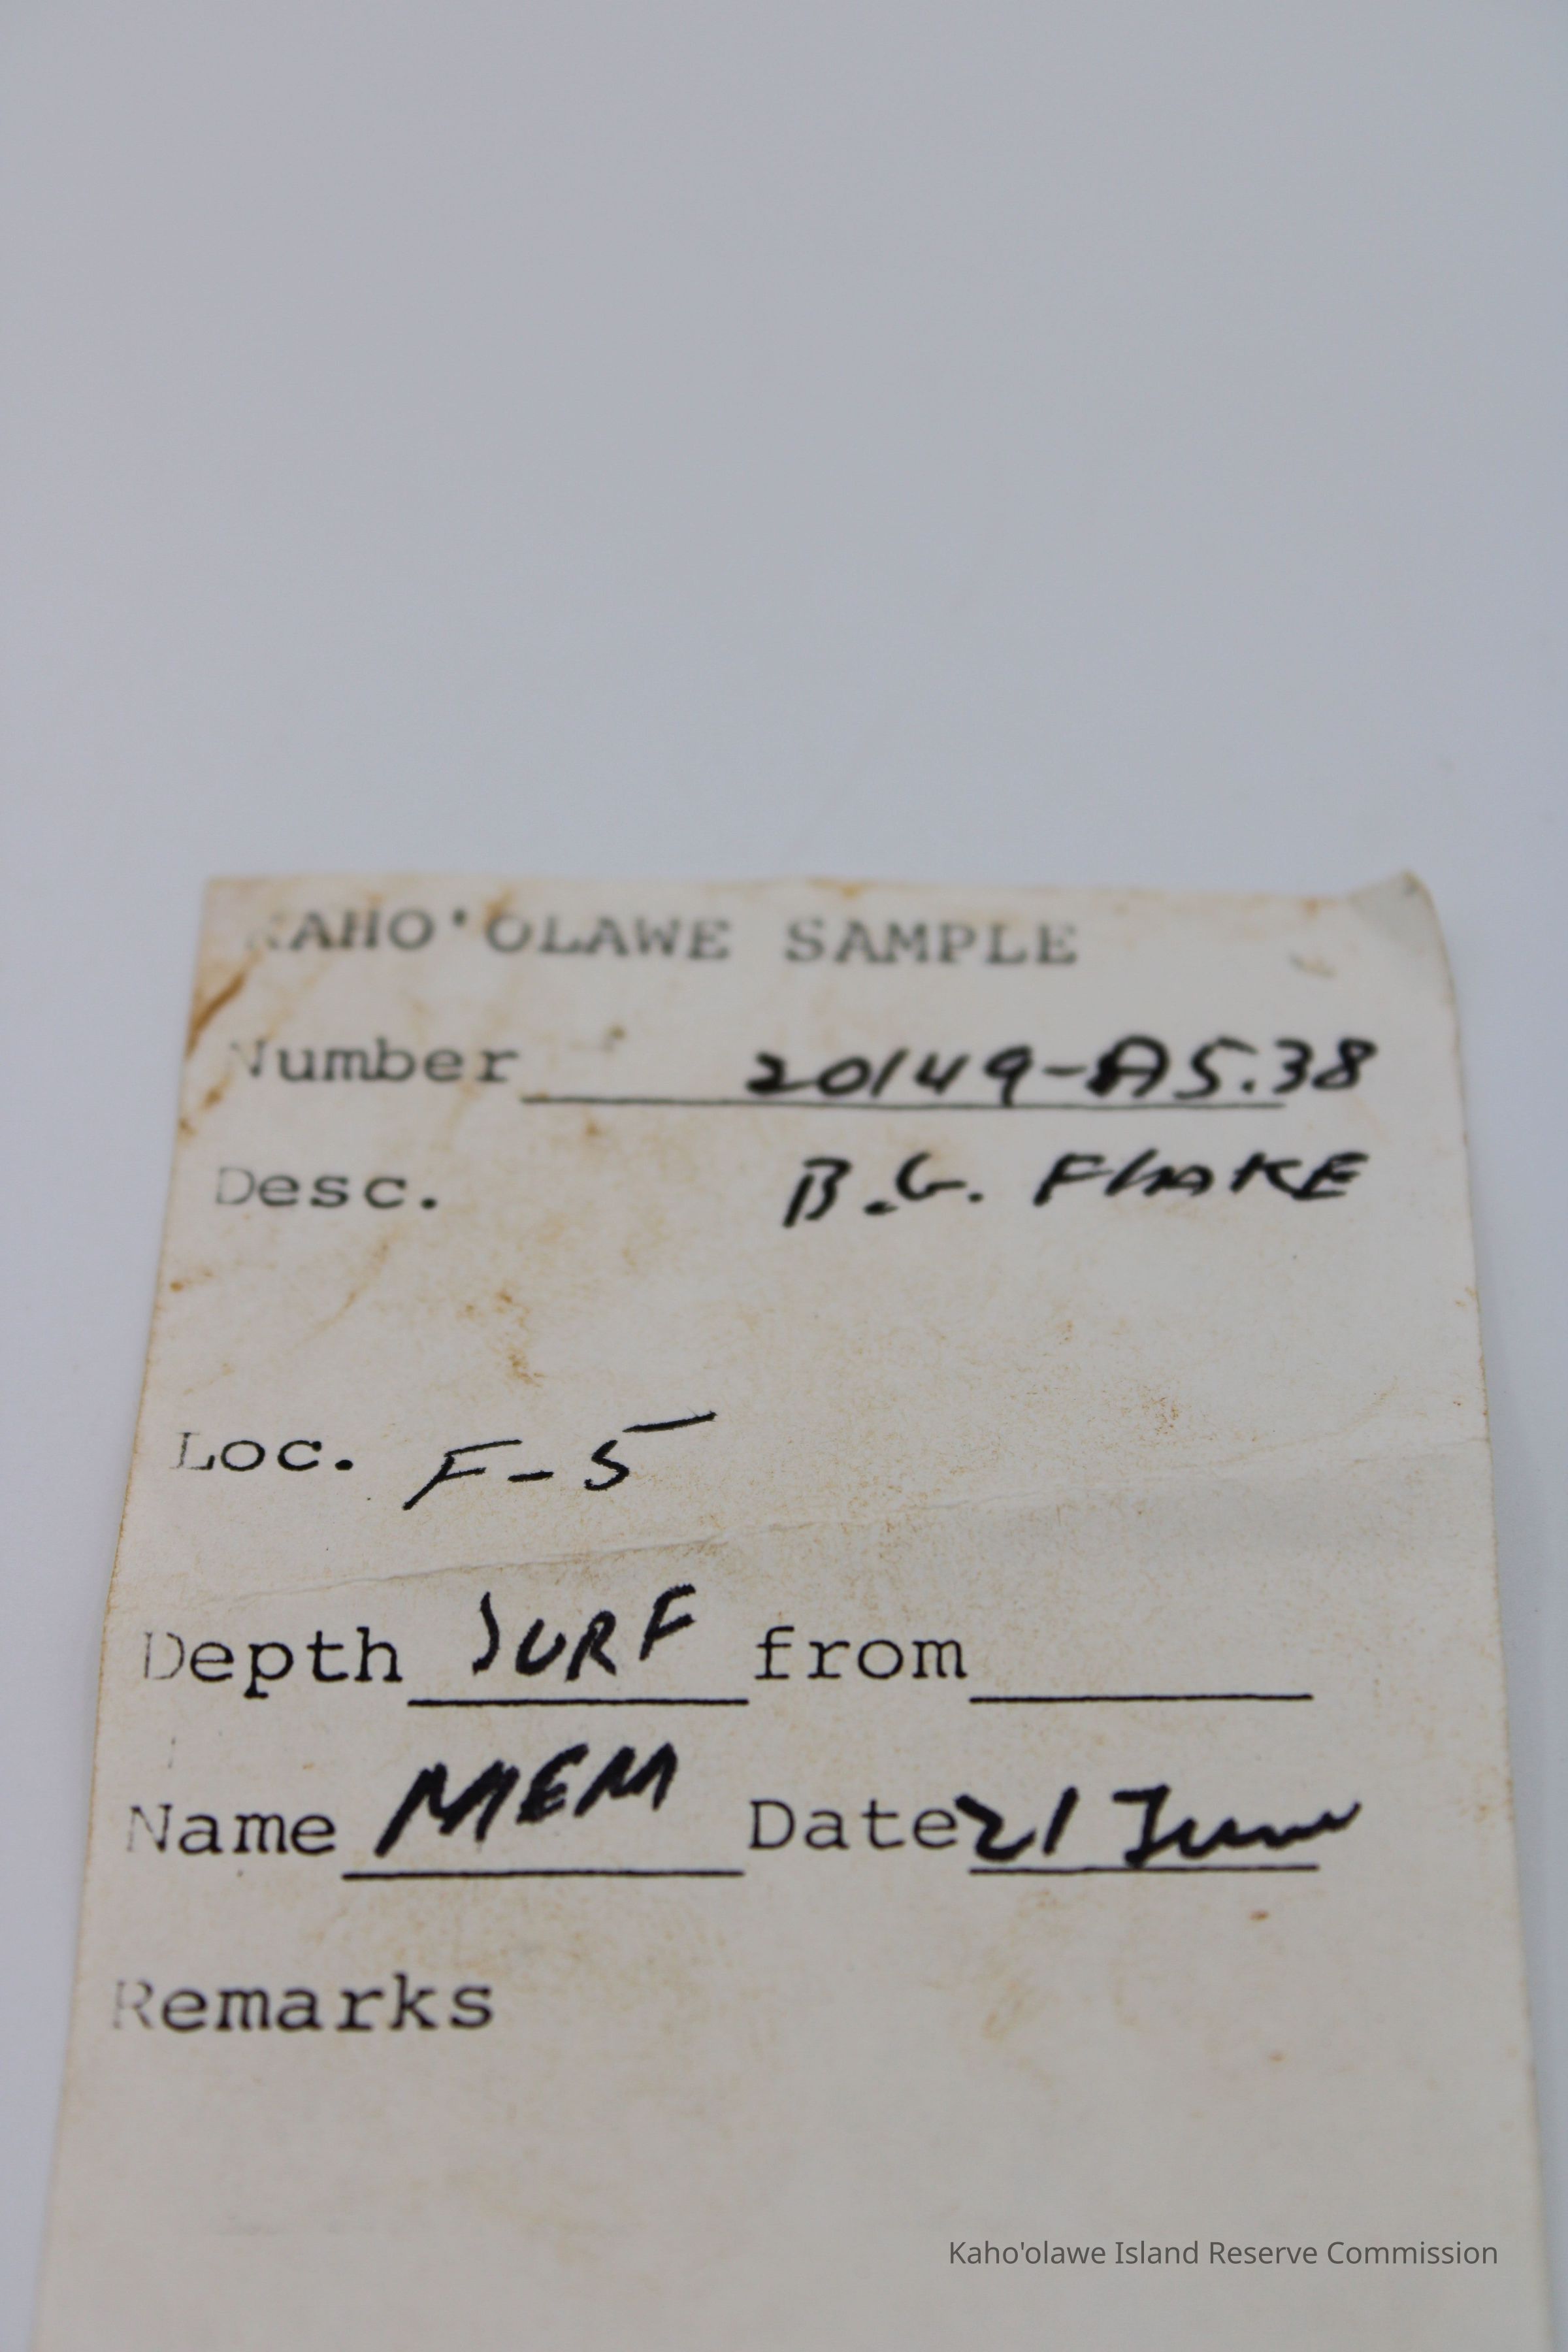 KAHO'OLAWE SAMPLE
Number 20149-A5.38
Desc. B.G. FLAKE
Loc. F-5
Depth SURF from
Name MEM Date 21 June
Remarks
Kaho'olawe Island Reserve Commission